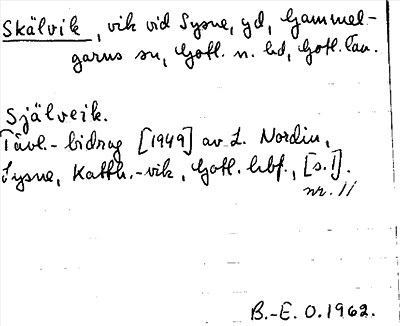 Skälvik, vik vid Sysne, gd, Gammel-
garns sn, Gotl. n. hd, Gotl. län.
Själveik.
Tävl.-bidrag [1949] av L. Nordin,
Sysne, Katth.-vik, Gotl. hbf., [s.1].
nr. 11
B.-E. O. 1962.